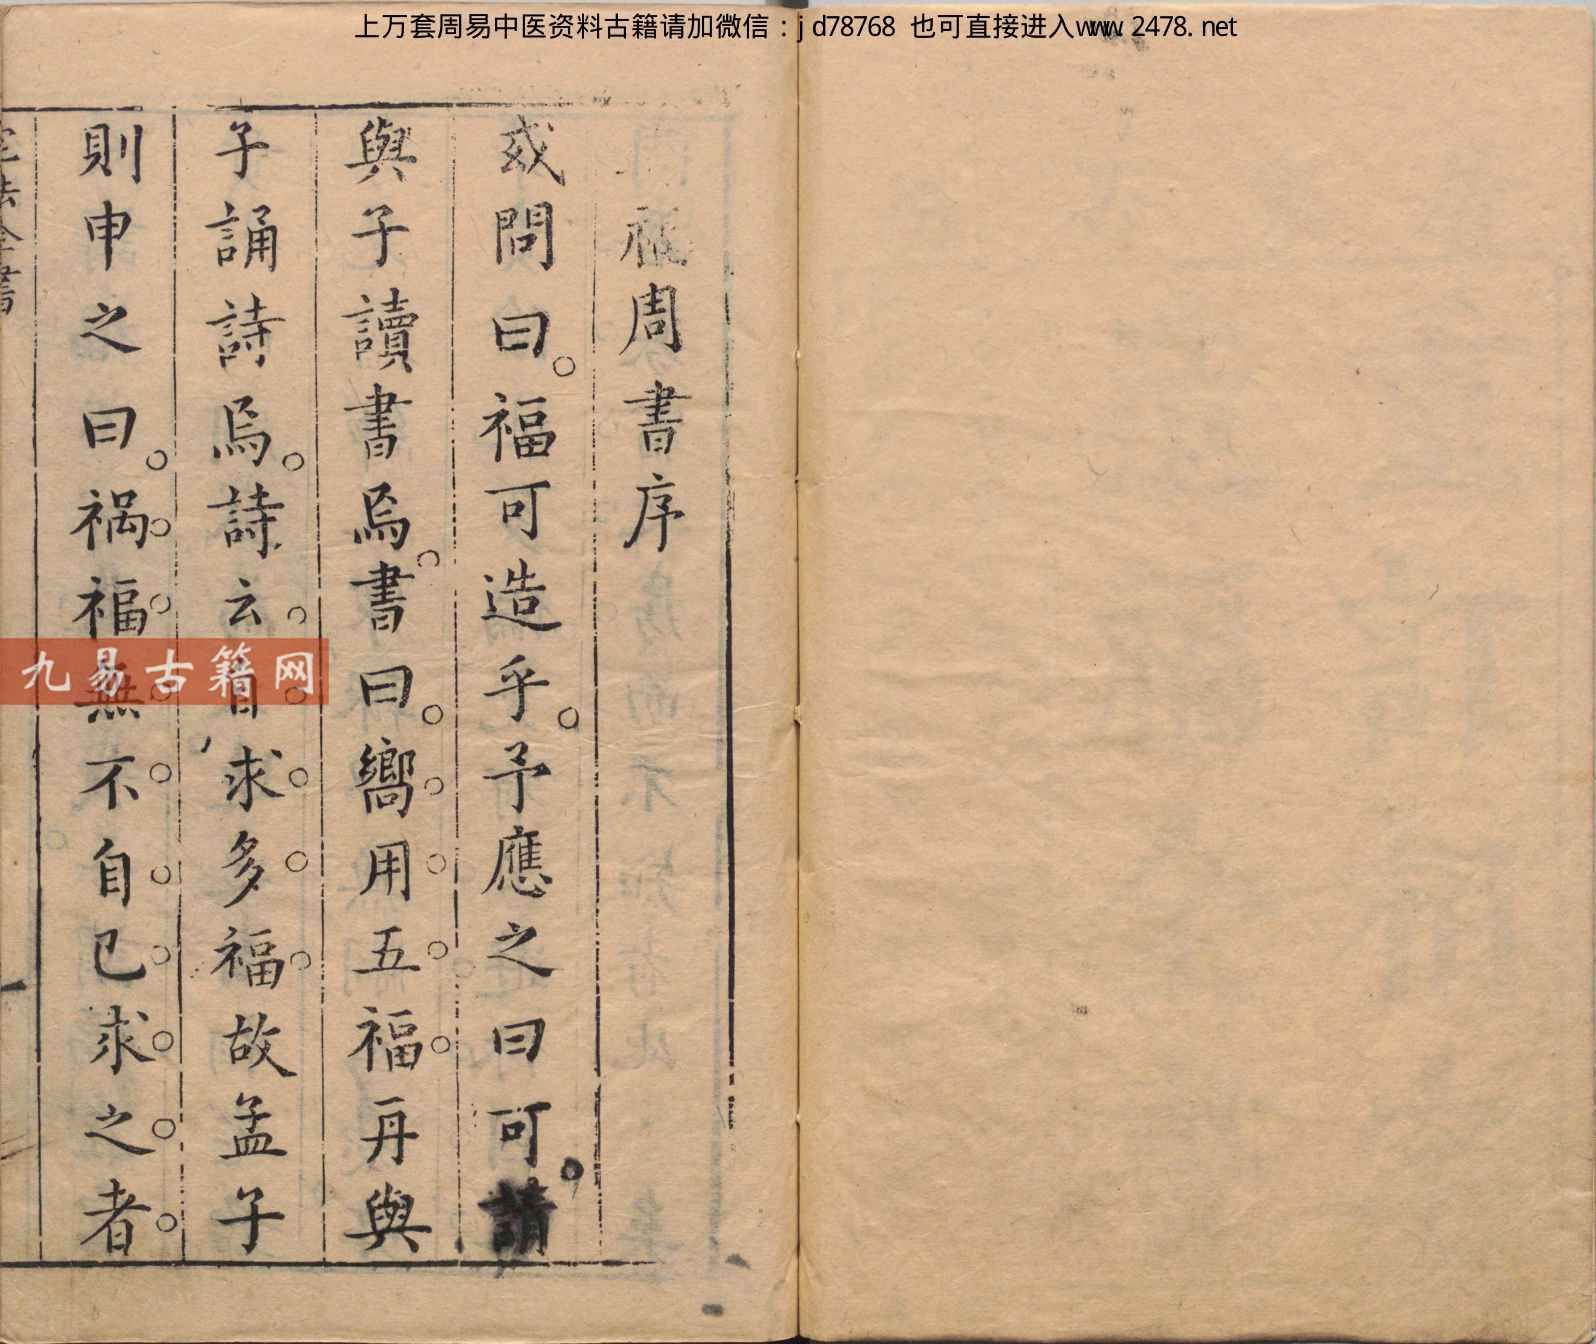 上万套周易中医资料古籍请加微信：jd78768 也可直接进入www.2478.net
福周書序
或問曰福可造乎予應之曰可請
與子讀書焉書曰嚮用五福再與
子誦詩焉詩云自求多福故孟子
則申之曰禍福無不自己求之者
全書
九易古籍网